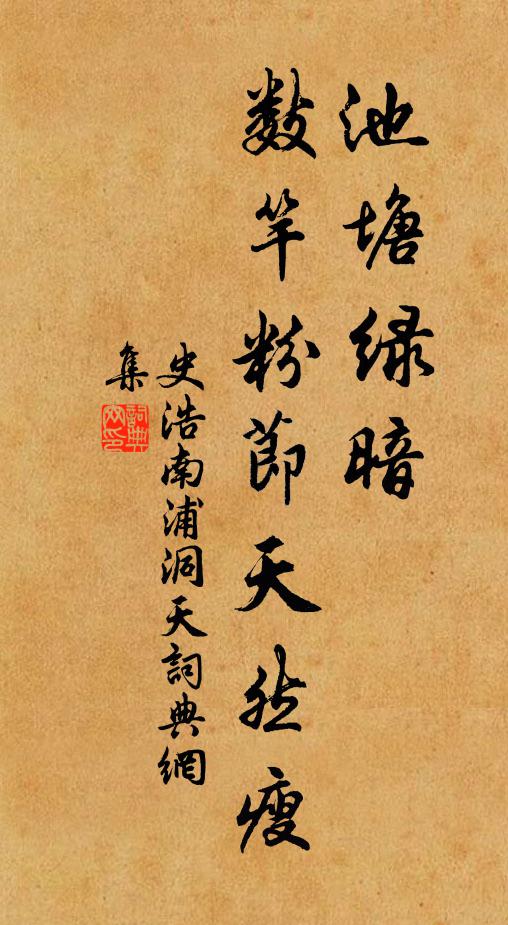 池塘绿暗
数竿粉節天然瘦
史浩南浦洞天詞典網
集
詞典
网印